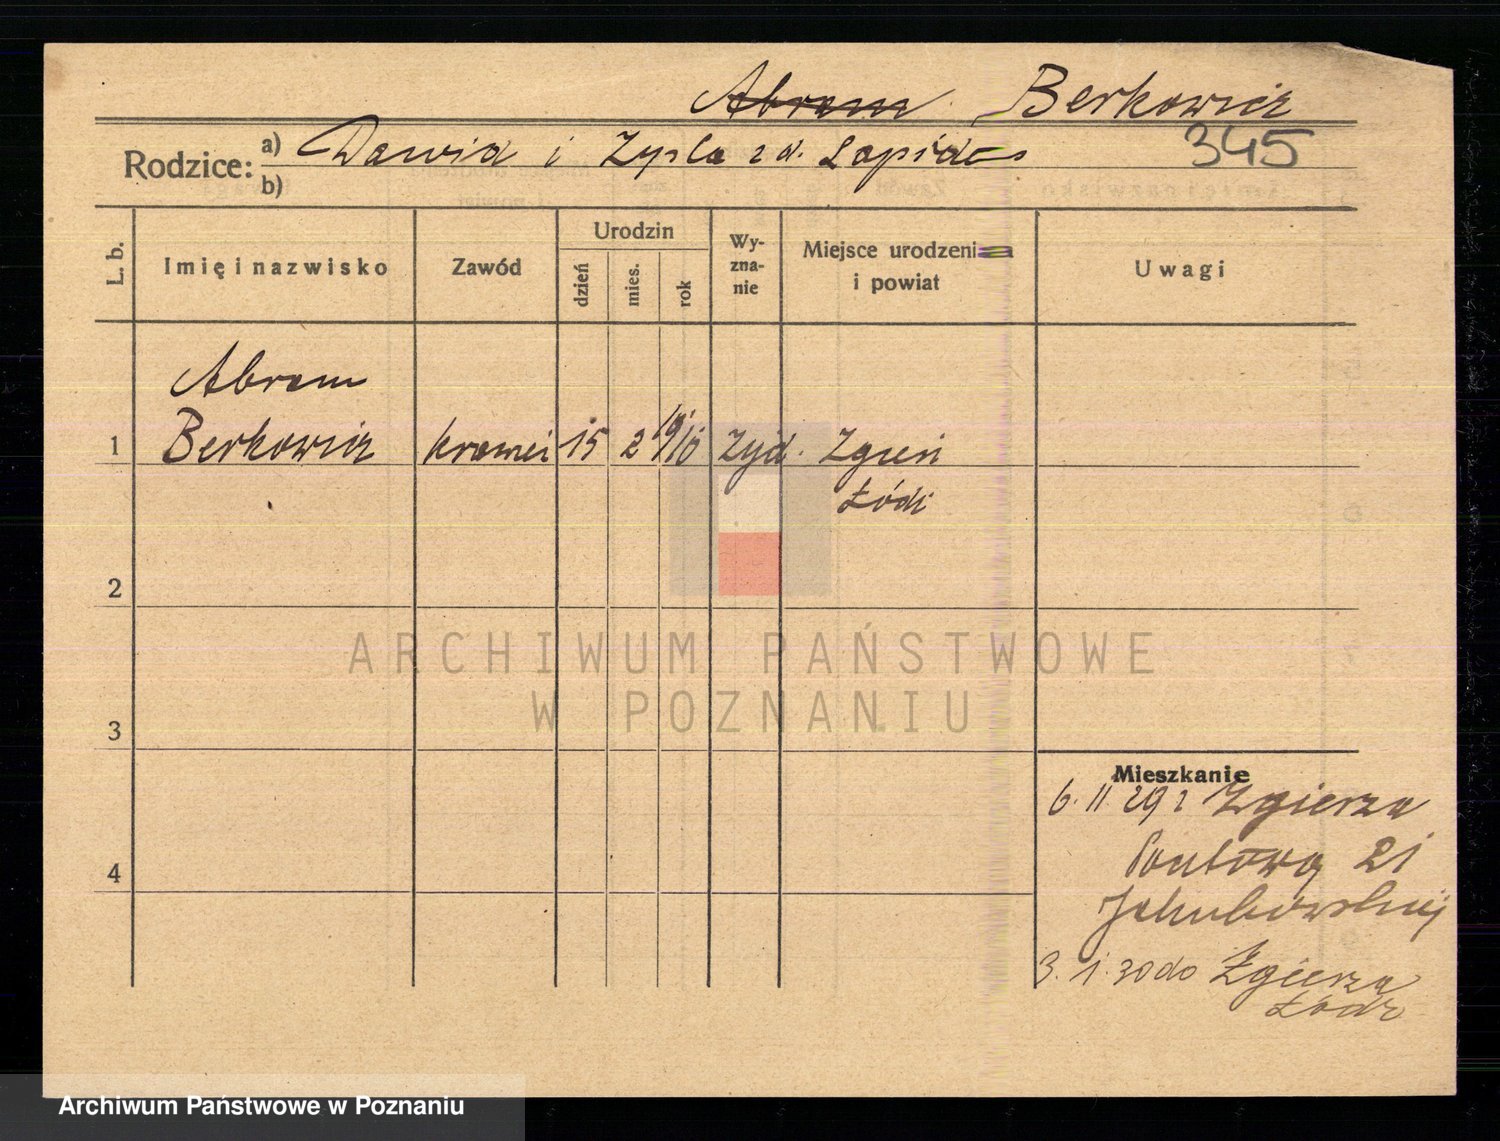 Abram Berkowicz
Rodzice: a) Dawid i Zysla z d. Lapides 345
b)
L. b. Imię i nazwisko Zawód Urodzin dzień mies. rok Wy-zna-nie Miejsce urodzenia i powiat Uwagi
Abram
1 Berkowicz 15 2 1910 żyd. Zgierz
Łódź
2
ARCHIWUM PAŃSTWOWE
W POZNANIU
3
Mieszkanie
6. 11. 29 z Zgierza
4 21
Jakubowskiej
3. 1. 30 do Zgierza
Łódź
Archiwum Państwowe w Poznaniu